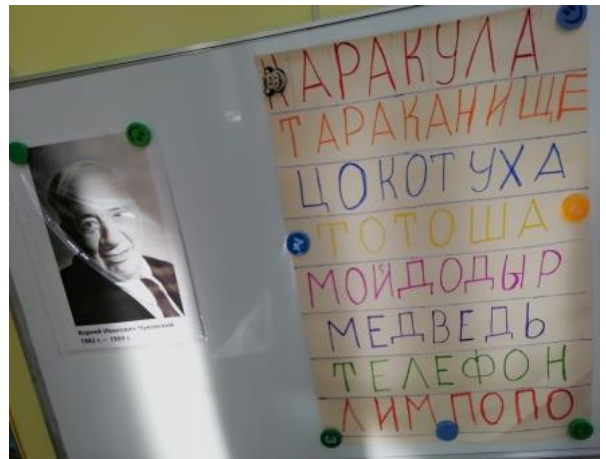 Корней Иванович Чуковский
1882 г. – 1969 г.
КАРАКУЛА
ТАРАКАНИЩЕ
ЦОКОТУХА
ТОТОША
МОЙДОДЫР
МЕДВЕДЬ
ТЕЛЕФОН
ЛИМПОПО